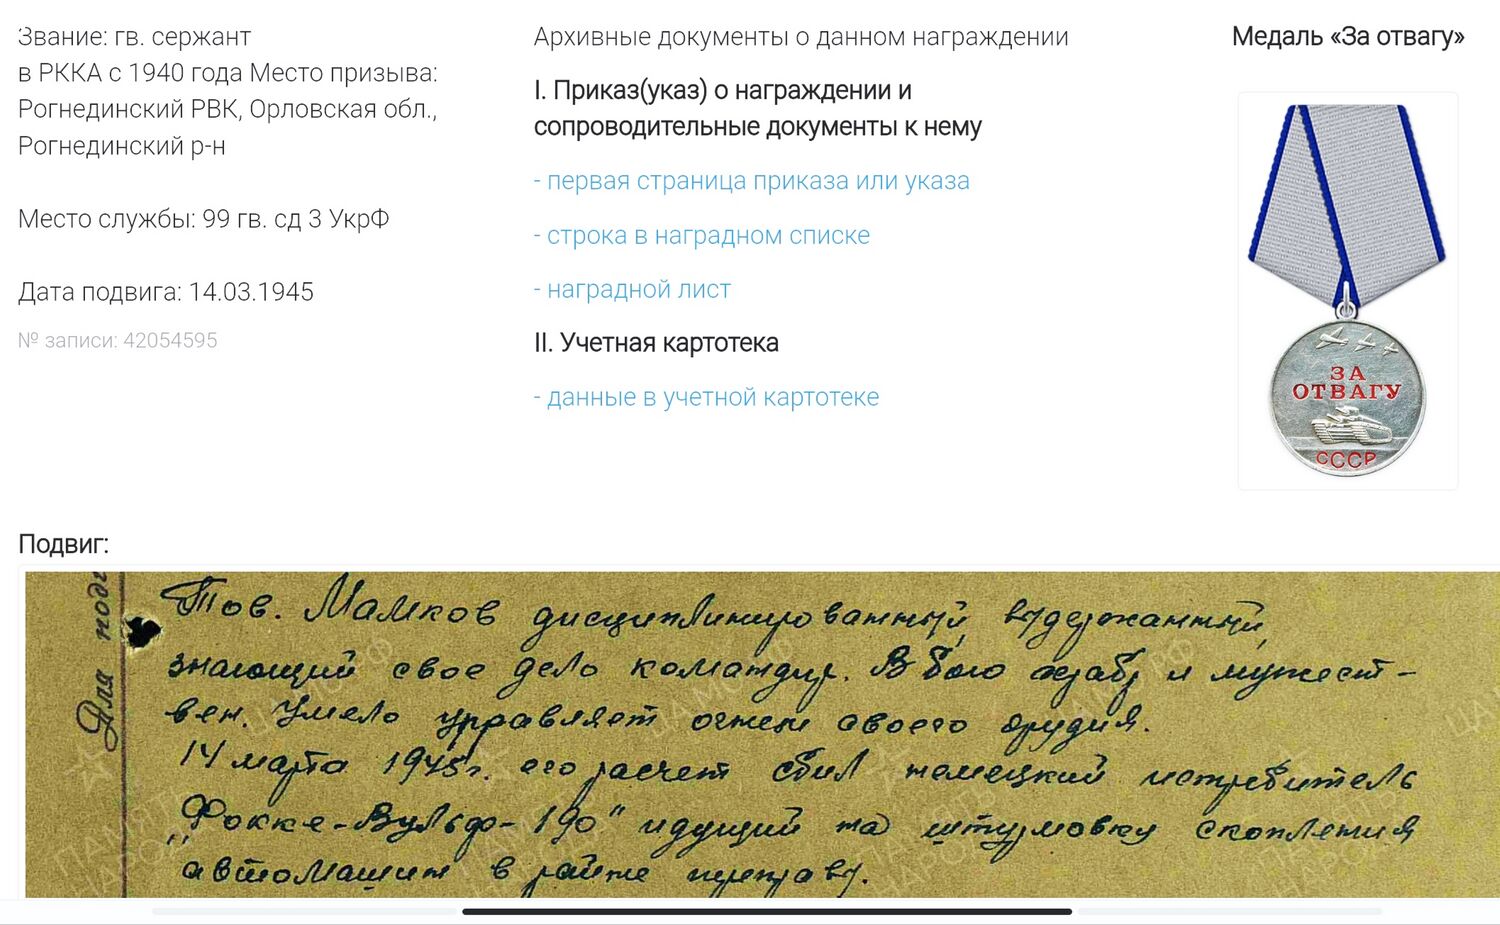 Звание: гв. сержант
в РККА с 1940 года Место призыва:
Рогнединский РВК, Орловская обл.,
Рогнединский р-н
Место службы: 99 гв. сд 3 УкрФ
Дата подвига: 14.03.1945
№ записи: 42054595
Архивные документы о данном награждении
I. Приказ(указ) о награждении и
сопроводительные документы к нему
- первая страница приказа или указа
- строка в наградном списке
- наградной лист
II. Учетная картотека
- данные в учетной картотеке
Медаль «За отвагу»
ЗА
ОТВАГУ
СССР
Подвиг:
Для подш
Тов. Мамков дисциплинированный, выдержанный,
знающий свое дело командир. В бою храбр и мужест-
вен. Умело управляет огнем своего орудия.
14 марта 1945г. его расчет сбил немецкий истребитель
"Фокке-Вульф-190" идущий на штурмовку скопления
автомашин в районе переправы.
ПАМЯТЬ
НАРОДА
ЦАМО РФ